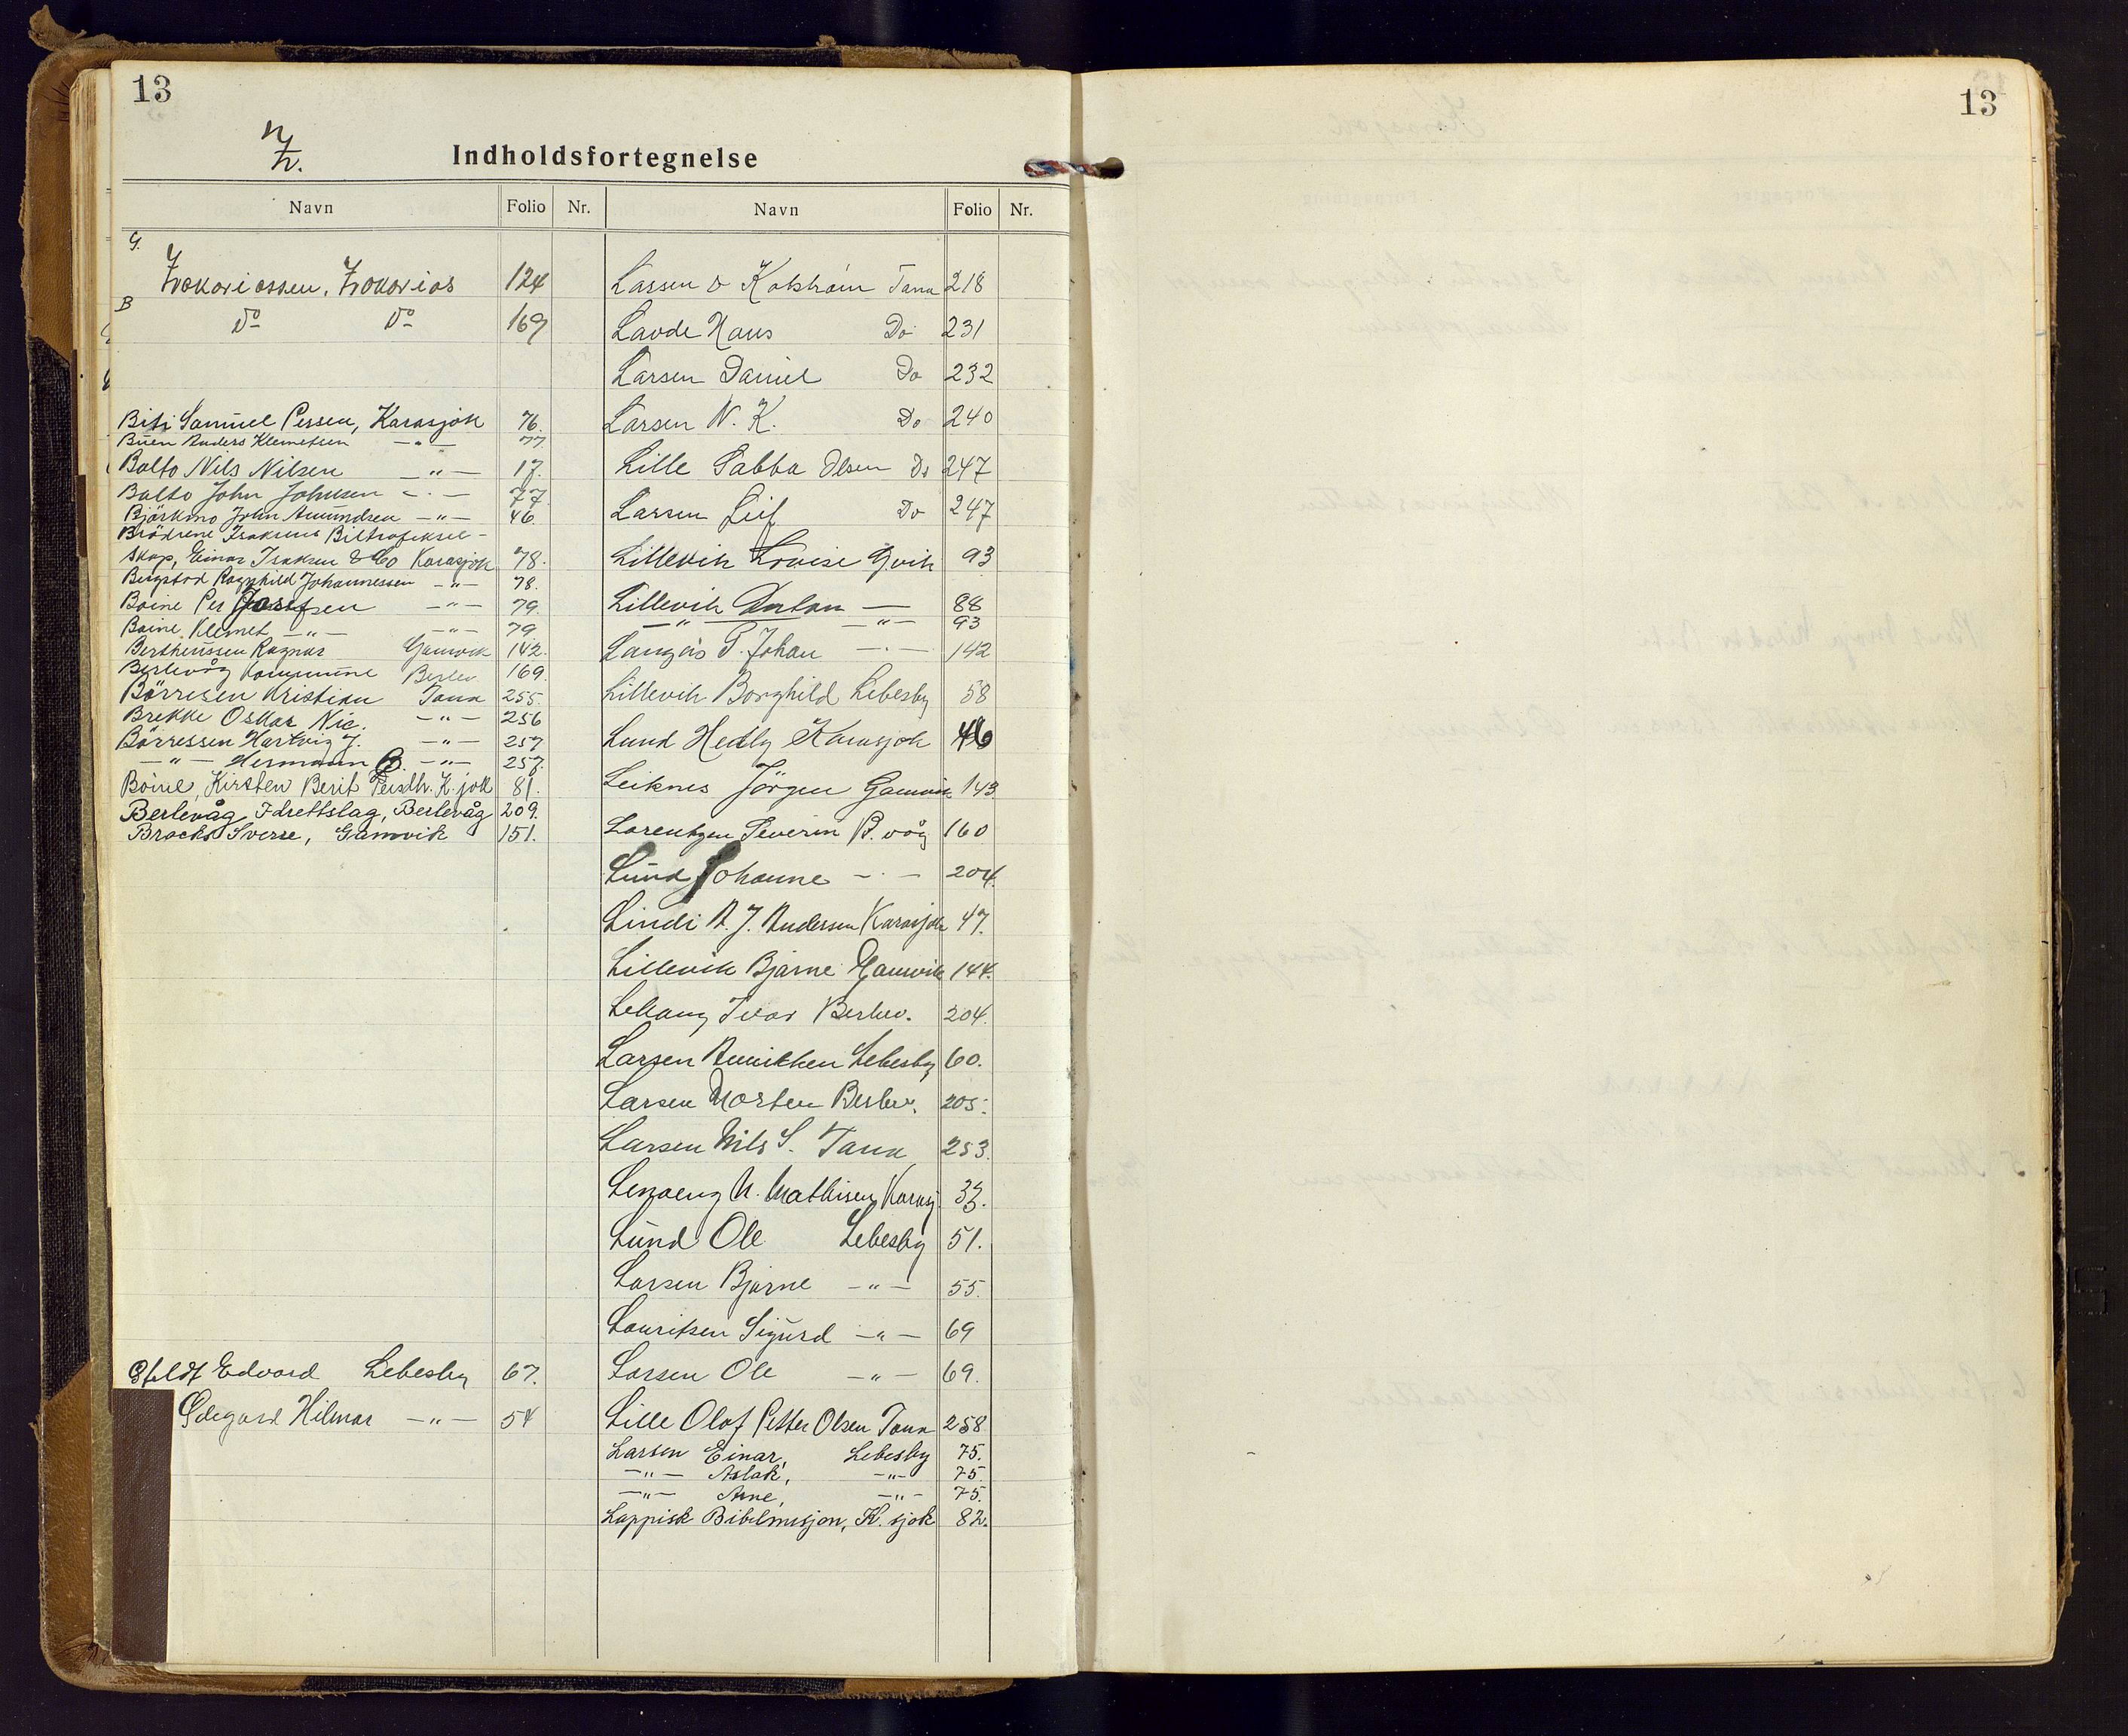 13
Indholdsfortegnelse
Navn Folio Nr.
G.
Zakariassen, Zakarias 124
B
Do Do 169
Biti Samuel Persen, Karasjok 76.
Buen Anders Klemetsen —"— 77.
Balto Nils Nilsen —"— 17.
Balto John Johnsen —"— 77.
Björkmo John Amundsen —"— 46.
Brödrene Isaksens Biltrafiksel-
skap, Einar Isaksen & Co Karasjok 78.
Bergstad Ragnhild Johannessen —"— 78.
Boine Per Josefsen —"— 79.
Boine Klemet —"— —"— 79
Bertheussen Ragnar Gamvik 142.
Berlevåg Kommune Berlev. 169.
Börresen Kristian Tana 255.
Brekke Oskar Nic. —"— 256
Börressen Hartvig J. —"— 257
—"— Hermann —"— 257.
Boine, Kirsten Berit Persdtr. K.jok 81.
Berlevåg Idrettslag, Berlevåg 209.
Brochs Sverre, Gamvik 151.
Edvard Lebesby 67.
Ödegård Hilmar —"— 54
Navn Folio Nr.
Larsen & Kolström Tana 218
Lavde Hans Do 231
Larsen Daniel Do 232
Larsen N. K. Do 240
Lille Sabba Olsen Do 247
Larsen Leif Do 247
Lillevik Lovise Gvik 93
Lillevik Anton — 88
—"— —"— 93
Johan —"— 142
Lillevik Borghild Lebesby 58
Lund Hedly Karasjok 46
Leiknes Jörgen Gamvik 143
Lorentzen Severin B.våg 160
Lund Johanne —"— 204.
Lindi A. J. Andersen Karasjok 47.
Lillevik Bjarne Gamvik 144.
Ivar Berlev. 204.
Larsen Annikken Lebesby 60.
Larsen Morten Berlev. 205.
Larsen Nils S. Tana 253.
N. Mathisen Karasj.
Lund Ole Lebesby 51.
Larsen Bjarne —"— 55.
Lauritsen Sigurd —"— 69
Larsen Ole —"— 69.
Lille Olaf Petter Olsen Tana 258
Larsen Einar, Lebesby 75.
—"— Aslak, —"— 75.
—"— Arne, —"— 75.
Lappisk Bibelmisjon, K.sjok 82.
13